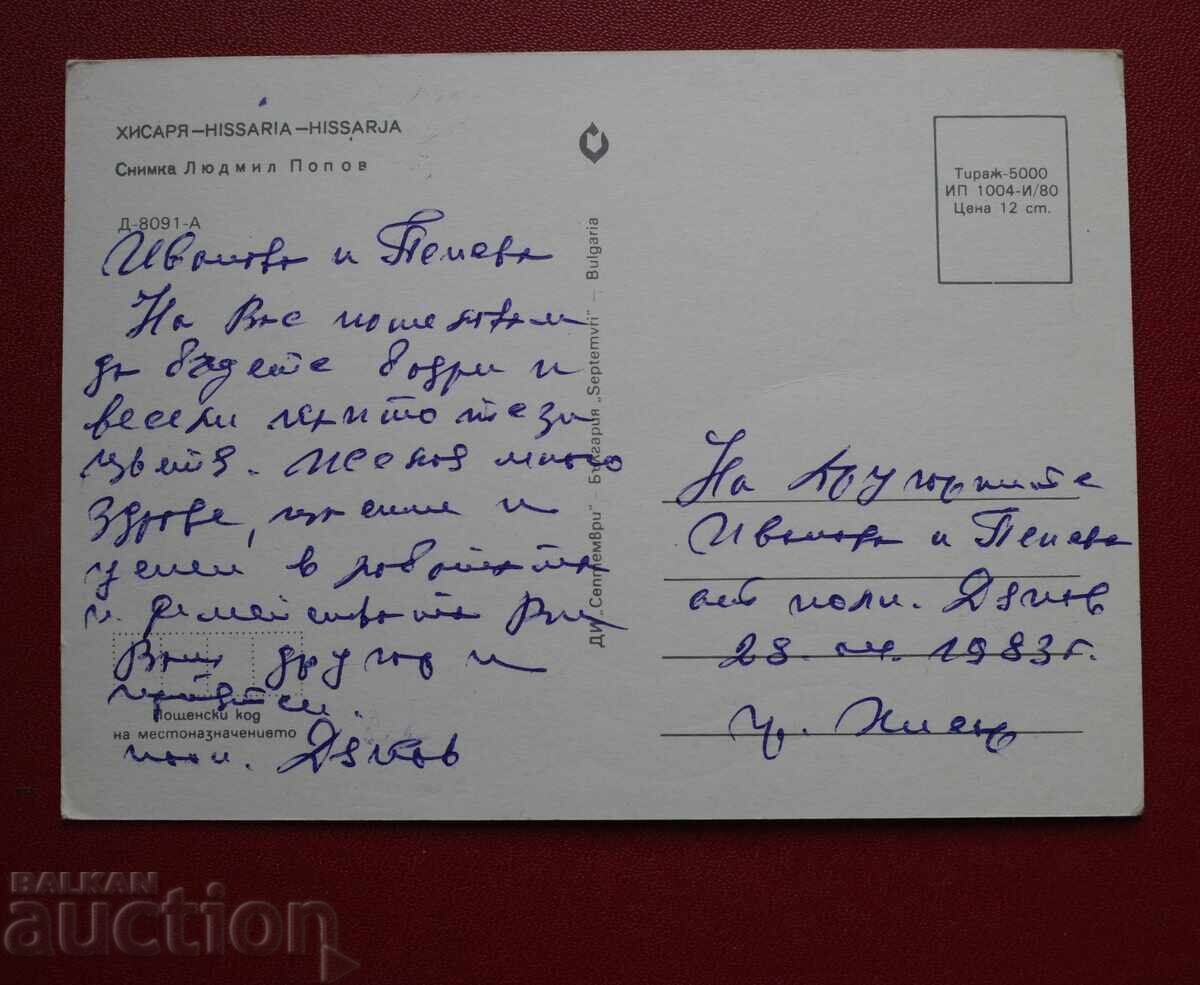 ХИСАРЯ—HISSARIA—HISSARJA
Снимка Людмил Попов
Д-8091-А
Иванова и Пенева
На Вас пожелавам
да бъдете бодри и
весели като тези
цветя. Желая много
здраве, щастие и
успехи в работата
и семейството Ви
Ваш другар и
приятел.
полк. Дяков
Пощенски код
на местоназначението
ДИ „Септември" – България „Septemvri" – Bulgaria
Тираж-5000
ИП 1004-И/80
Цена 12 ст.
На другарките
Иванова и Пенева
от полк. Дяков
28. 1983г.
гр. Хисар
BALKAN
auction